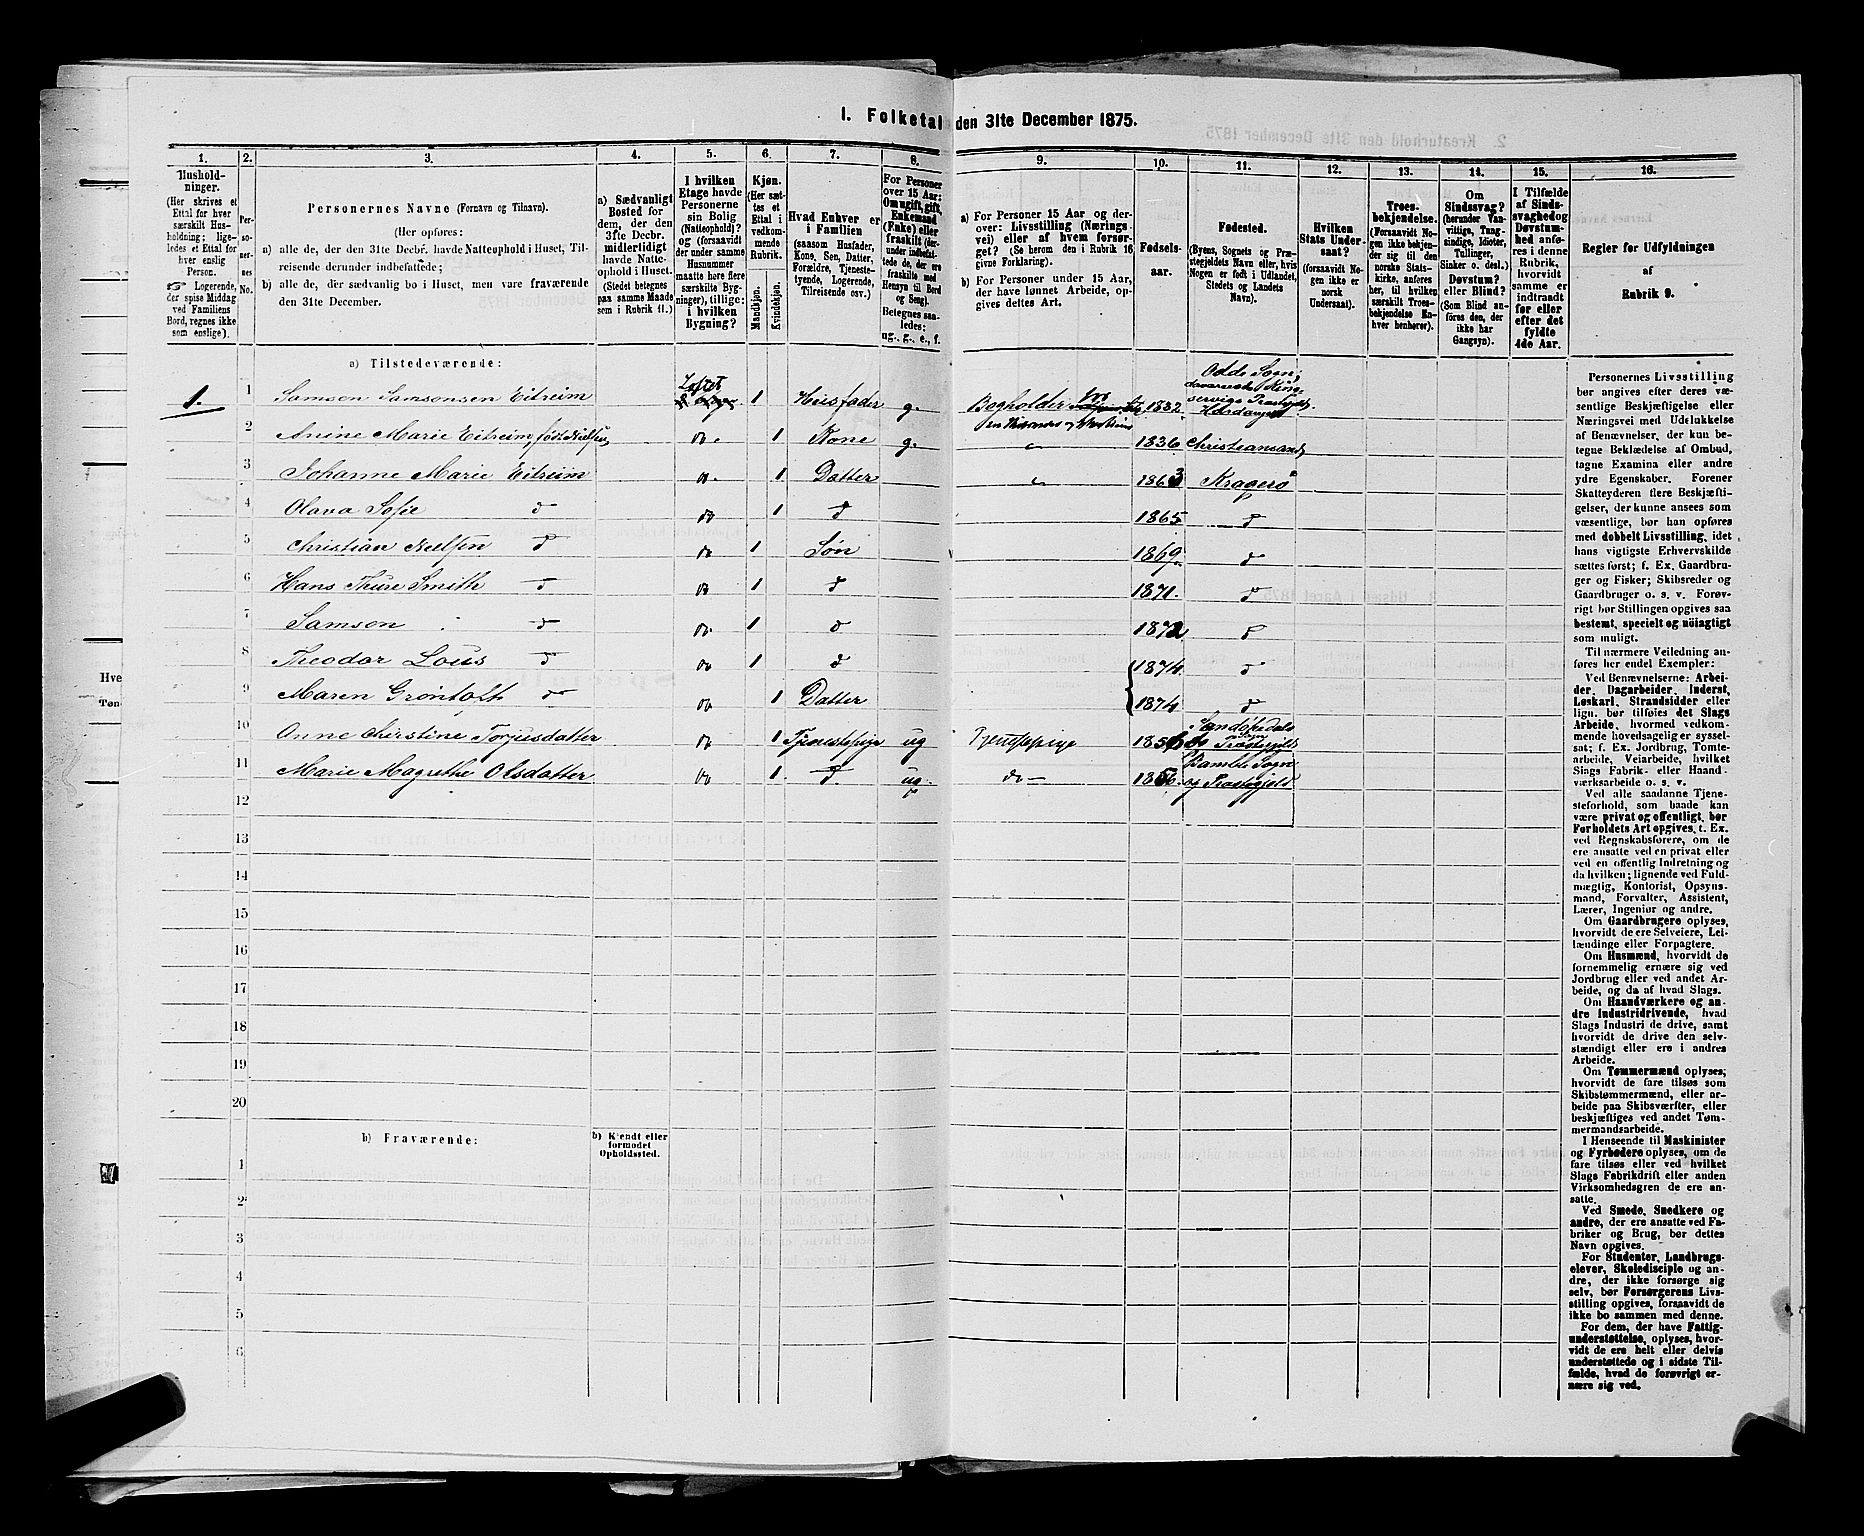 I. Folketal den 31te December 1875.
1.
2.
3.
4.
5.
6.
7.
8.
9.
10.
11.
12.
13.
14.
15.
16.
Hushold-
ninger.
(Her skrives et
Ettal for hver
særskilt Hus-
holdning; lige-
ledes et Ettal
for hver
enslig
Person.
Logerende,
der spise Middag
ved Familiens
Bord, regnes ikke
som enslige).
Per-
so-
ner-
nes
No.
Personernes Navne (Fornavn og Tilnavn).
(Her opføres:
a) alle de, der den 31te Decbr. havde Natteophold i Huset, Til-
reisende derunder indbefattede;
b) alle de, der sædvanlig bo i Huset, men vare fraværende
den 31te December.
a) Sædvanligt
Bosted for
dem, der den
31te Decbr.
midlertidigt
havde Natte-
ophold i Huset.
(Stedet betegnes
paa samme Maade
som i Rubrik 11.)
I hvilken
Etage havde
Personerne
sin Bolig
(Natteophold)?
og (forsaavidt
der under samme
Husnummer
maatte høre flere
særskilte Byg-
ninger), tillige:
i hvilken
Bygning?
Kjøn.
(Her sæt-
tes et
Ettal i
vedkom-
mende
Rubrik.
Mandkjøn.
Kvindekjøn.
Hvad Enhver er
i Familien
(saasom Husfader,
Kone, Søn, Datter,
Forældre, Tjeneste-
tyende, Logerende,
Tilreisende osv.)
For Personer
over 15 Aar:
Om ugift, gift,
Enkemand
(Enke) eller
fraskilt (der-
under indbefat-
tede de, der ere
fraskilte med
Hensyn til Bord
og Seng).
Betegnes saa-
ledes:
ug., g., e., f.
a) For Personer 15 Aar og der-
over: Livsstilling (Nærings-
vei) eller af hvem forsør-
get? (Se herom den i Rubrik 16
givne Forklaring).
b) For Personer under 15 Aar,
der have lønnet Arbeide, op-
gives dettes Art.
Fødsels-
aar.
Fødested.
(Byens, Sognets og Præ-
stegjeldets Navn eller, hvis
Nogen er født i Udlandet,
Stedets og Landets
Navn).
Hvilken
Stats Under-
saat?
(forsaavidt No-
gen ikke er
norsk
Undersaat).
Troes-
bekjendelse.
(Forsaavidt No-
gen ikke bekjen-
der sig til den
norske Stats-
kirke, anføres
her, til hvilken
særskilt Troes-
bekjendelse En-
hver henhører).
Om
Sindssvag?
(herunder Van-
vittige, Tung-
sindige, Idioter,
Tullinger,
Sinker o. desl.)
Døvstum?
eller Blind?
(Som Blind an-
føres den, der
ikke har
Gangsyn).
I Tilfælde
af Sinds-
svaghed og
Døvstum-
hed anfø-
res i denne
Rubrik,
hvorvidt
samme er
indtraadt
før eller
efter det
fyldte
4de Aar.
Regler for Udfyldningen
af
Rubrik 9.
a) Tilstedeværende:
1. 1 Samson Samsonsen Eitreim Loftet 1 Husfader g. Bogholder 1832 Odde Sogn, Hardanger
2 Anine Marie Eitreim, født Nielsen do. 1 Kone g. 1836 Christiansand
3 Johanne Marie Eitreim do. 1 Datter 1863 Kragerø
4 Olava Sofie d do 1 d 1865 d
5 Christian Nielsen d do 1 Søn 1869. d
6 Hans Thure Smith d do 1 d 1871. d
7 Samson d do. 1 d 1872 d
8 Theodor Lous d do 1 d 1874. d
9 Maren Grøntoft do do 1 Datter 1874 d
10 Anne Cherstine Torjusdatter do 1 Tjenestepige ug Tjenestepige Sandøkedals Præstegjeld
11 Marie Magrethe Olsdatter do 1. d. ug. do— 1856. Bamble Sogn og Præstegjeld
12
13
14
15
16
17
18
19
20
b) Fraværende:
b) Kjendt eller
formodet
Opholdssted.
1
2
3
4
5
6
Personernes Livsstilling
bør angives efter deres væ-
sentlige Beskjæftigelse eller
Næringsvei med Udelukkelse
af Benævnelser, der kun be-
tegne Beklædelse af Ombud,
tagne Examina eller andre
ydre Egenskaber. Forener
Skatteyderen flere Beskjæfti-
gelser, der kunne ansees som
væsentlige, bør han opføres
med dobbelt Livsstilling, idet
hans vigtigste Erhvervskilde
sættes først; f. Ex. Gaardbru-
ger og Fisker; Skibsreder og
Gaardbruger o. s. v. Forøv-
rigt bør Stillingen opgives saa
bestemt, specielt og nøiagtigt
som muligt.
Til nærmere Veiledning an-
føres her endel Exempler:
Ved Benævnelserne: Arbei-
der, Dagarbeider, Inderst,
Løskarl, Strandsidder eller
lign. bør tilføies det Slags
Arbeide, hvormed vedkom-
mende hovedsagelig er syssel-
sat; f. Ex. Jordbrug, Tomte-
arbeide, Veiarbeide, hvilket
Slags Fabrik- eller Haand-
værksarbeide o. s. v.
Ved alle saadanne Tjene-
steforhold, som baade kan
være privat og offentligt, bør
Forholdets Art opgives, t. Ex.
ved Regnskabsførere, om de
ere ansatte ved en privat eller
ved en offentlig Indretning og
da hvilken; lignende ved Fuld-
mægtig, Kontorist, Opsyns-
mand, Forvalter, Assistent,
Lærer, Ingeniør og andre.
Om Gaardbrugere oplyses,
hvorvidt de ere Selveiere, Lei-
lændinge eller Forpagtere.
Om Husmænd, hvorvidt de
fornemmelig ernære sig ved
Jordbrug eller ved andet Ar-
beide, og da af hvad Slags.
Om Haandværkere og an-
dre Industridrivende, hvad
Slags Industri de drive, samt
hvorvidt de drive den selv-
stændigt eller ere i andres
Arbeide.
Om Tømmermænd oplyses,
hvorvidt de fare tilsøs som
Skibstømmermænd, eller ar-
beide paa Skibsværfter, eller
beskjæftiges ved andet Tøm-
mermandsarbeide.
I Henseende til Maskinister
og Fyrbødere oplyses, om de
fare tilsøs eller ved hvilket
Slags Fabrikdrift eller anden
Virksomhedsgren de ere an-
satte.
Ved Smede, Snedkere og
andre, der ere ansatte ved Fa-
briker og Brug, bør dettes
Navn opgives.
For Studenter, Landbrugs-
elever, Skoledisciple og an-
dre, der ikke forsørge sig
selv, bør Forsørgerens Livs-
stilling opgives, forsaavidt de
ikke bo sammen med denne.
For dem, der have Fattig-
understøttelse, oplyses, hvor-
vidt de ere helt eller delvis
understøttede og i sidste Til-
fælde, hvad de forøvrigt er-
nære sig ved.